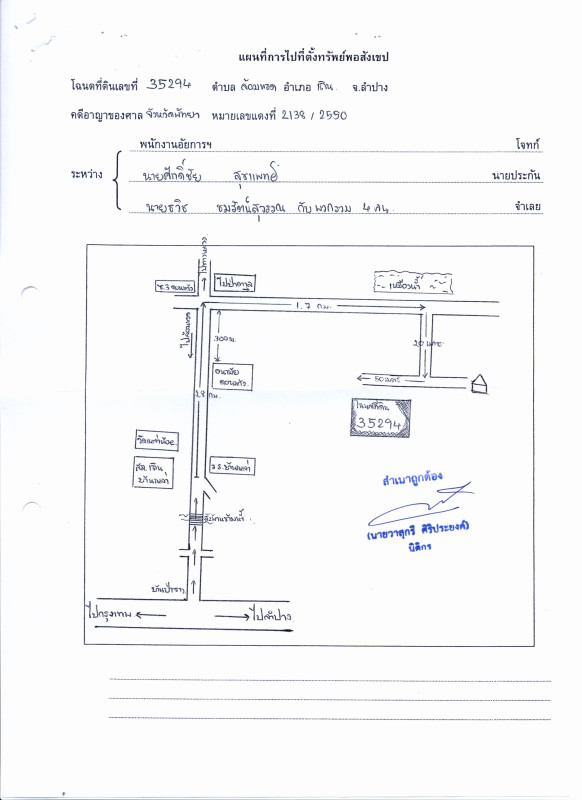 แผนที่การไปที่ตั้งทรัพย์พอสังเขป
โฉนดที่ดินเลขที่ 35294 ตำบล ล้อมแรด อำเภอ เถิน จ.ลำปาง
คดีอาญาของศาล จังหวัดพัทยา หมายเลขแดงที่ 2138 / 2550
พนักงานอัยการฯ โจทก์
ระหว่าง นายศักดิ์ชัย สุขแพทย์ นายประกัน
นายธวิช ชมรัตน์สุวรรณ กับพวกรวม 4 คน จำเลย
ไปป่าตาล
1.7 กม.
300ม.
20 เมตร
50 เมตร
อนามัย
ดอนแก้ว
2.8 กม.
โฉนดที่ดิน
35294
วัดเหล่าน้อย
สถ. เถิน
บ้านเหล่า
ร.ร. บ้านเหล่า
สะพานข้ามน้ำ
ไปกรุงเทพ
ไปลำปาง
สำเนาถูกต้อง
(นายวาสุกรี ศิริประยงค์)
นิติกร